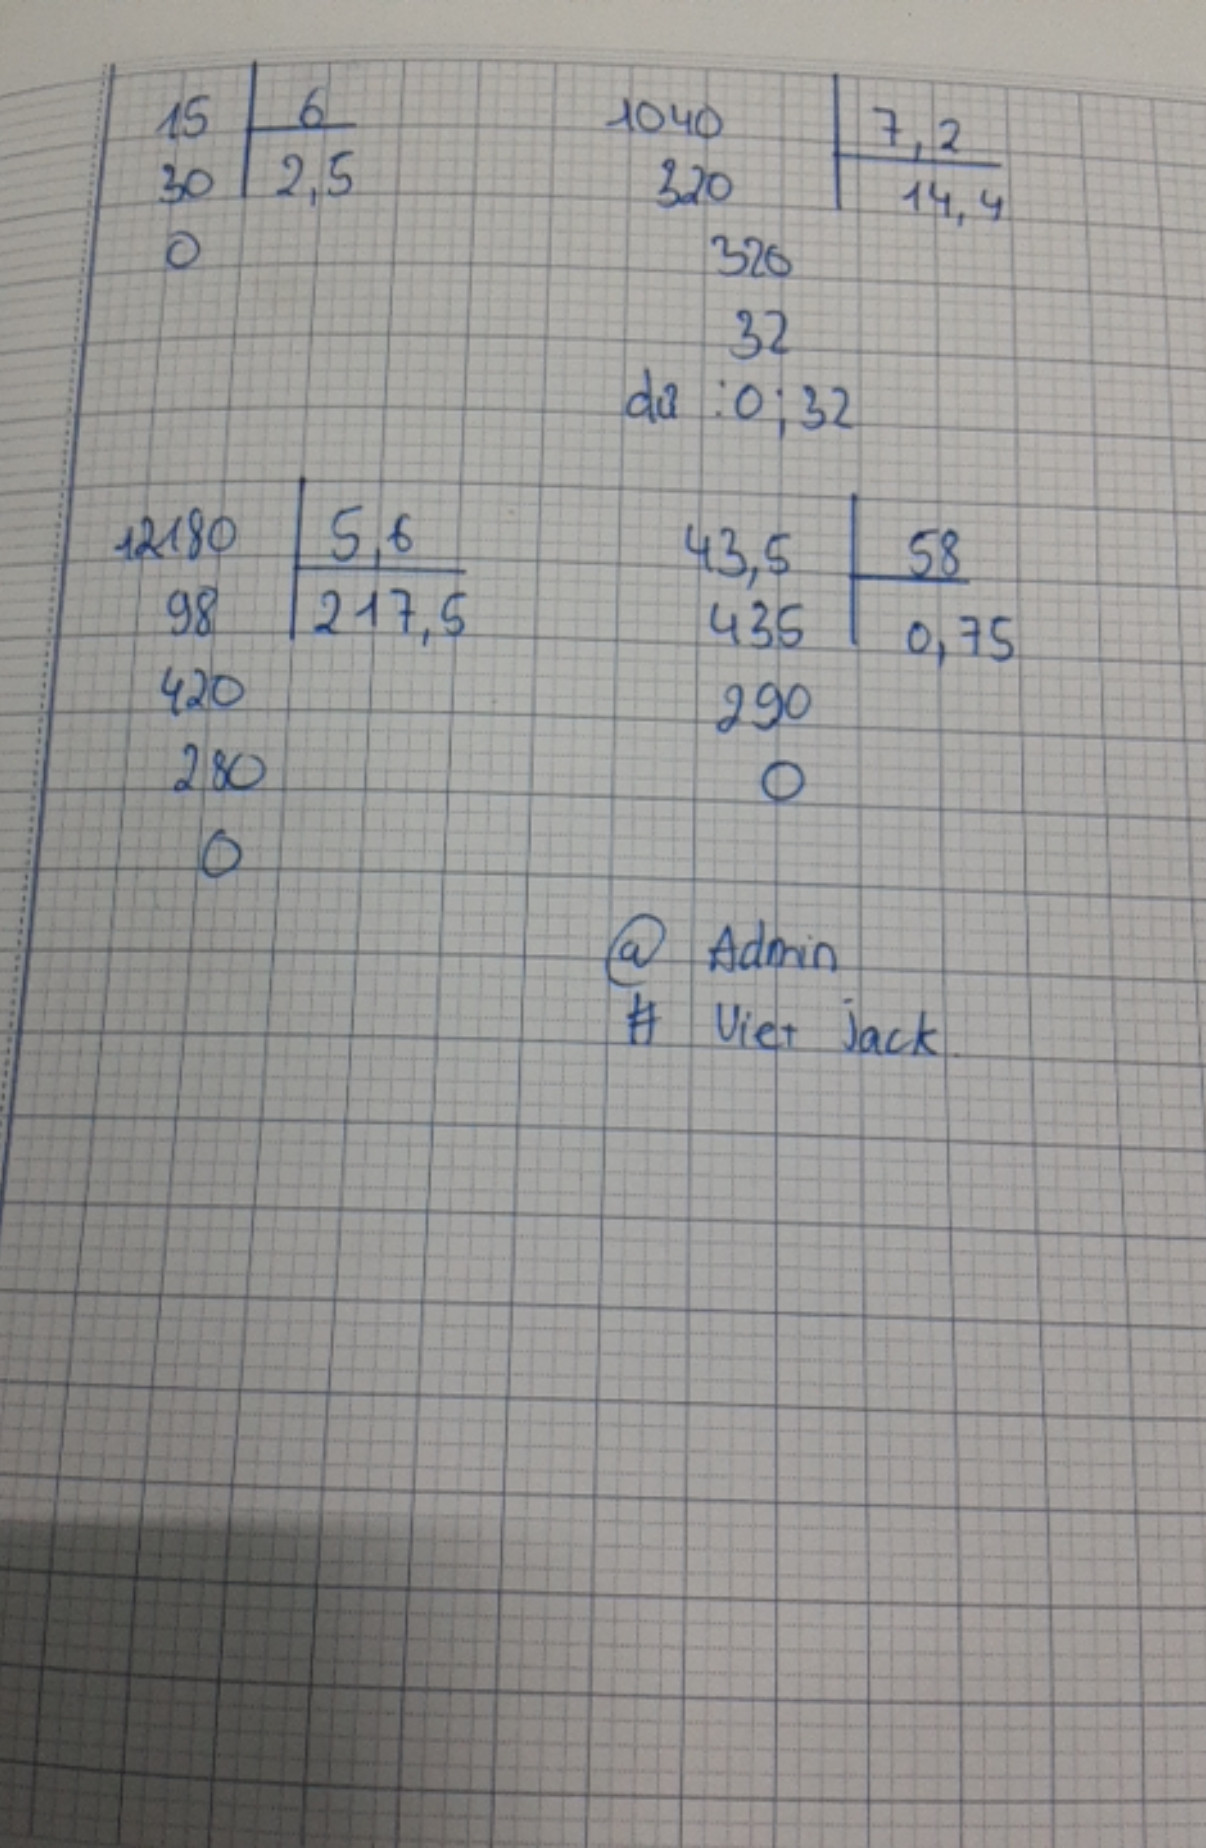 15 6
30 2,5
0
1040 7,2
320 14,4
320
32
dư : 0,32
12180 5,6
98 217,5
420
280
0
43,5 58
435 0,75
290
0
@ Admin
# Viet jack